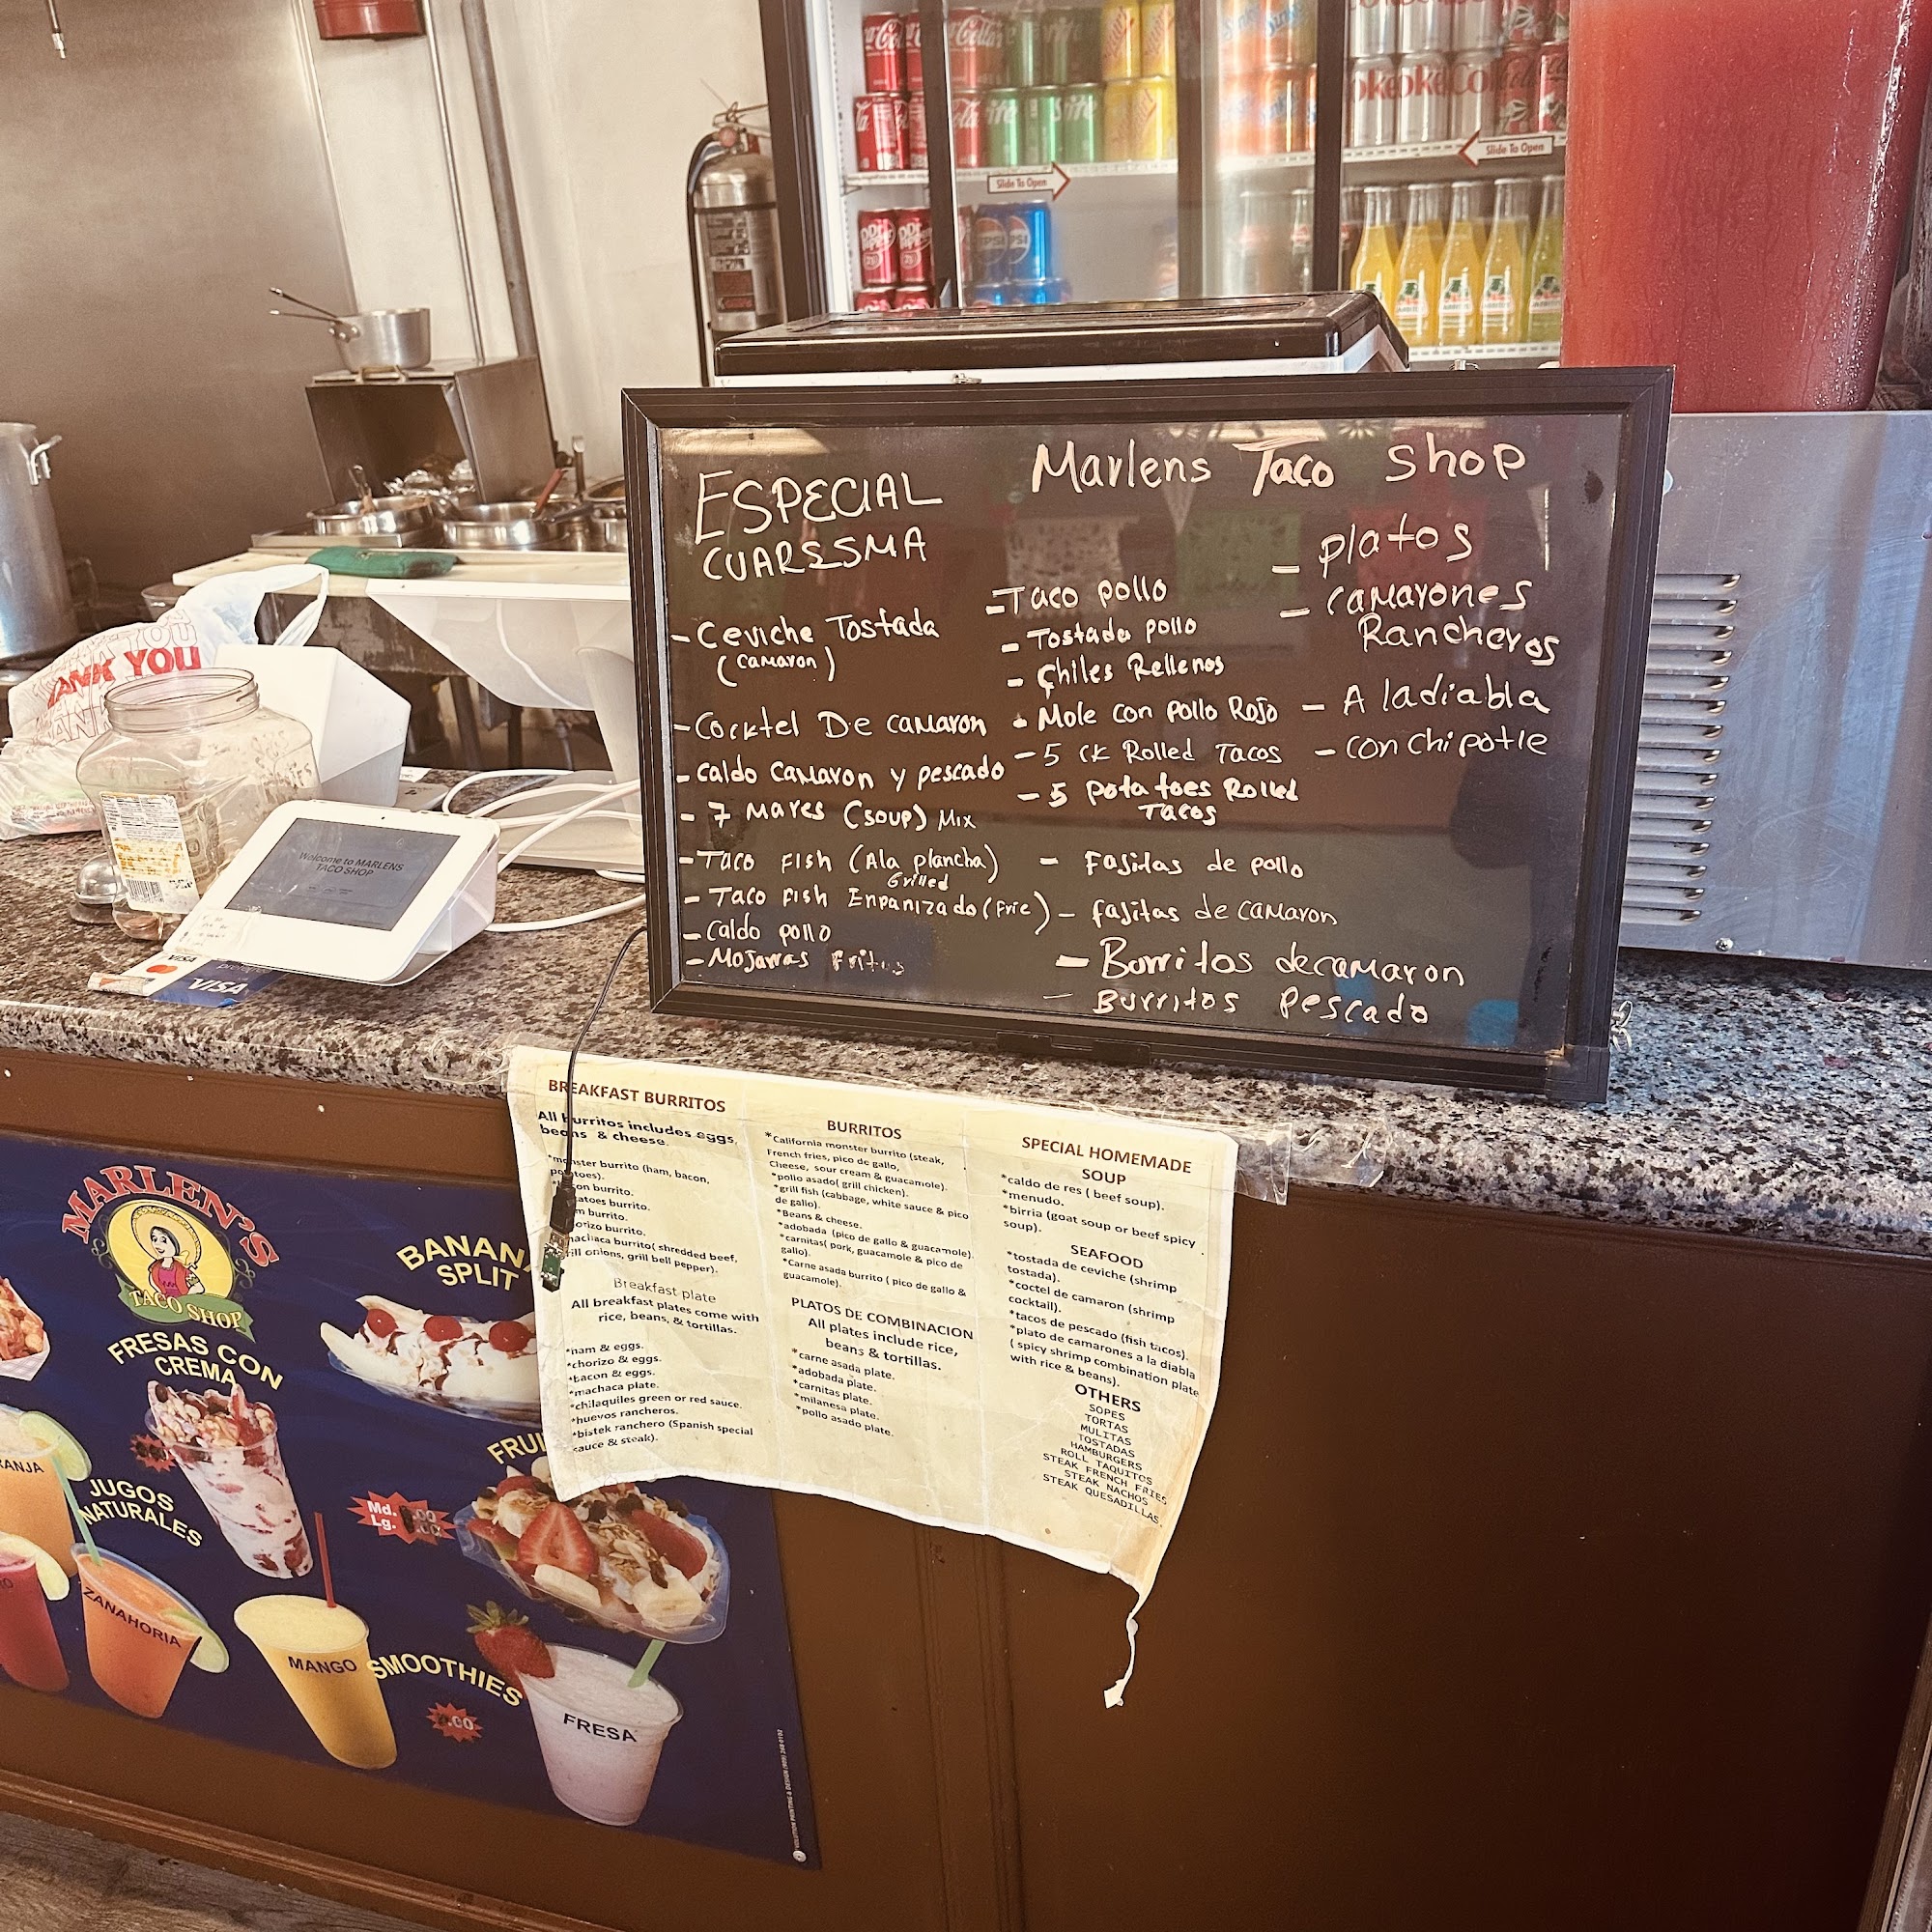 Slide To Open
Slide To Open
THANK YOU
Welcome to MARLENS
TACO SHOP
VISA
VISA
Marlens Taco Shop
ESPECIAL
CUARESMA
- Ceviche Tostada
(camaron)
- Cocktel De camaron
- Caldo Camaron y pescado
- 7 Mares (soup) Mix
- Taco Fish (Ala plancha)
Grilled
- Taco Fish Enpanizado (Frie)
- Caldo pollo
- Mojarras Fritas
- Taco pollo
- Tostada pollo
- Chiles Rellenos
- Mole con pollo Rojo
- 5 ck Rolled Tacos
- 5 potatoes Rolled
Tacos
- Fajitas de pollo
- fajitas de camaron
- Burritos de camaron
- Burritos Pescado
- platos
- camarones
Rancheros
- A ladiabla
- con chipotle
BREAKFAST BURRITOS
All burritos includes eggs,
beans & cheese.
*monster burrito (ham, bacon,
potatoes).
burrito.
burrito.
burrito.
burrito.
burrito( shredded beef,
onions, grill bell pepper).
Breakfast plate
All breakfast plates come with
rice, beans, & tortillas.
*ham & eggs.
*chorizo & eggs.
*bacon & eggs.
*machaca plate.
*chilaquiles green or red sauce.
*huevos rancheros.
*bistek ranchero (Spanish special
sauce & steak).
BURRITOS
*California monster burrito (steak,
French fries, pico de gallo,
Cheese, sour cream & guacamole).
*pollo asado( grill chicken).
*grill fish (cabbage, white sauce & pico
de gallo).
*Beans & cheese.
*adobada (pico de gallo & guacamole).
*carnitas( pork, guacamole & pico de
gallo).
*Carne asada burrito ( pico de gallo &
guacamole).
PLATOS DE COMBINACION
All plates include rice,
beans & tortillas.
*carne asada plate.
*adobada plate.
*carnitas plate.
*milanesa plate.
*pollo asado plate.
SPECIAL HOMEMADE
SOUP
*caldo de res ( beef soup).
*menudo.
*birria (goat soup or beef spicy
soup).
SEAFOOD
*tostada de ceviche (shrimp
tostada).
*coctel de camaron (shrimp
cocktail).
*tacos de pescado (fish tacos).
*plato de camarones a la diabla
( spicy shrimp combination plate
with rice & beans).
OTHERS
SOPES
TORTAS
MULITAS
TOSTADAS
HAMBURGERS
ROLL TAQUITOS
STEAK FRENCH FRIES
STEAK NACHOS
STEAK QUESADILLAS.
MARLEN'S
TACO SHOP
BANANA
SPLIT
FRESAS CON
CREMA
JUGOS
NATURALES
Md.
Lg.
ZANAHORIA
MANGO
SMOOTHIES
FRESA